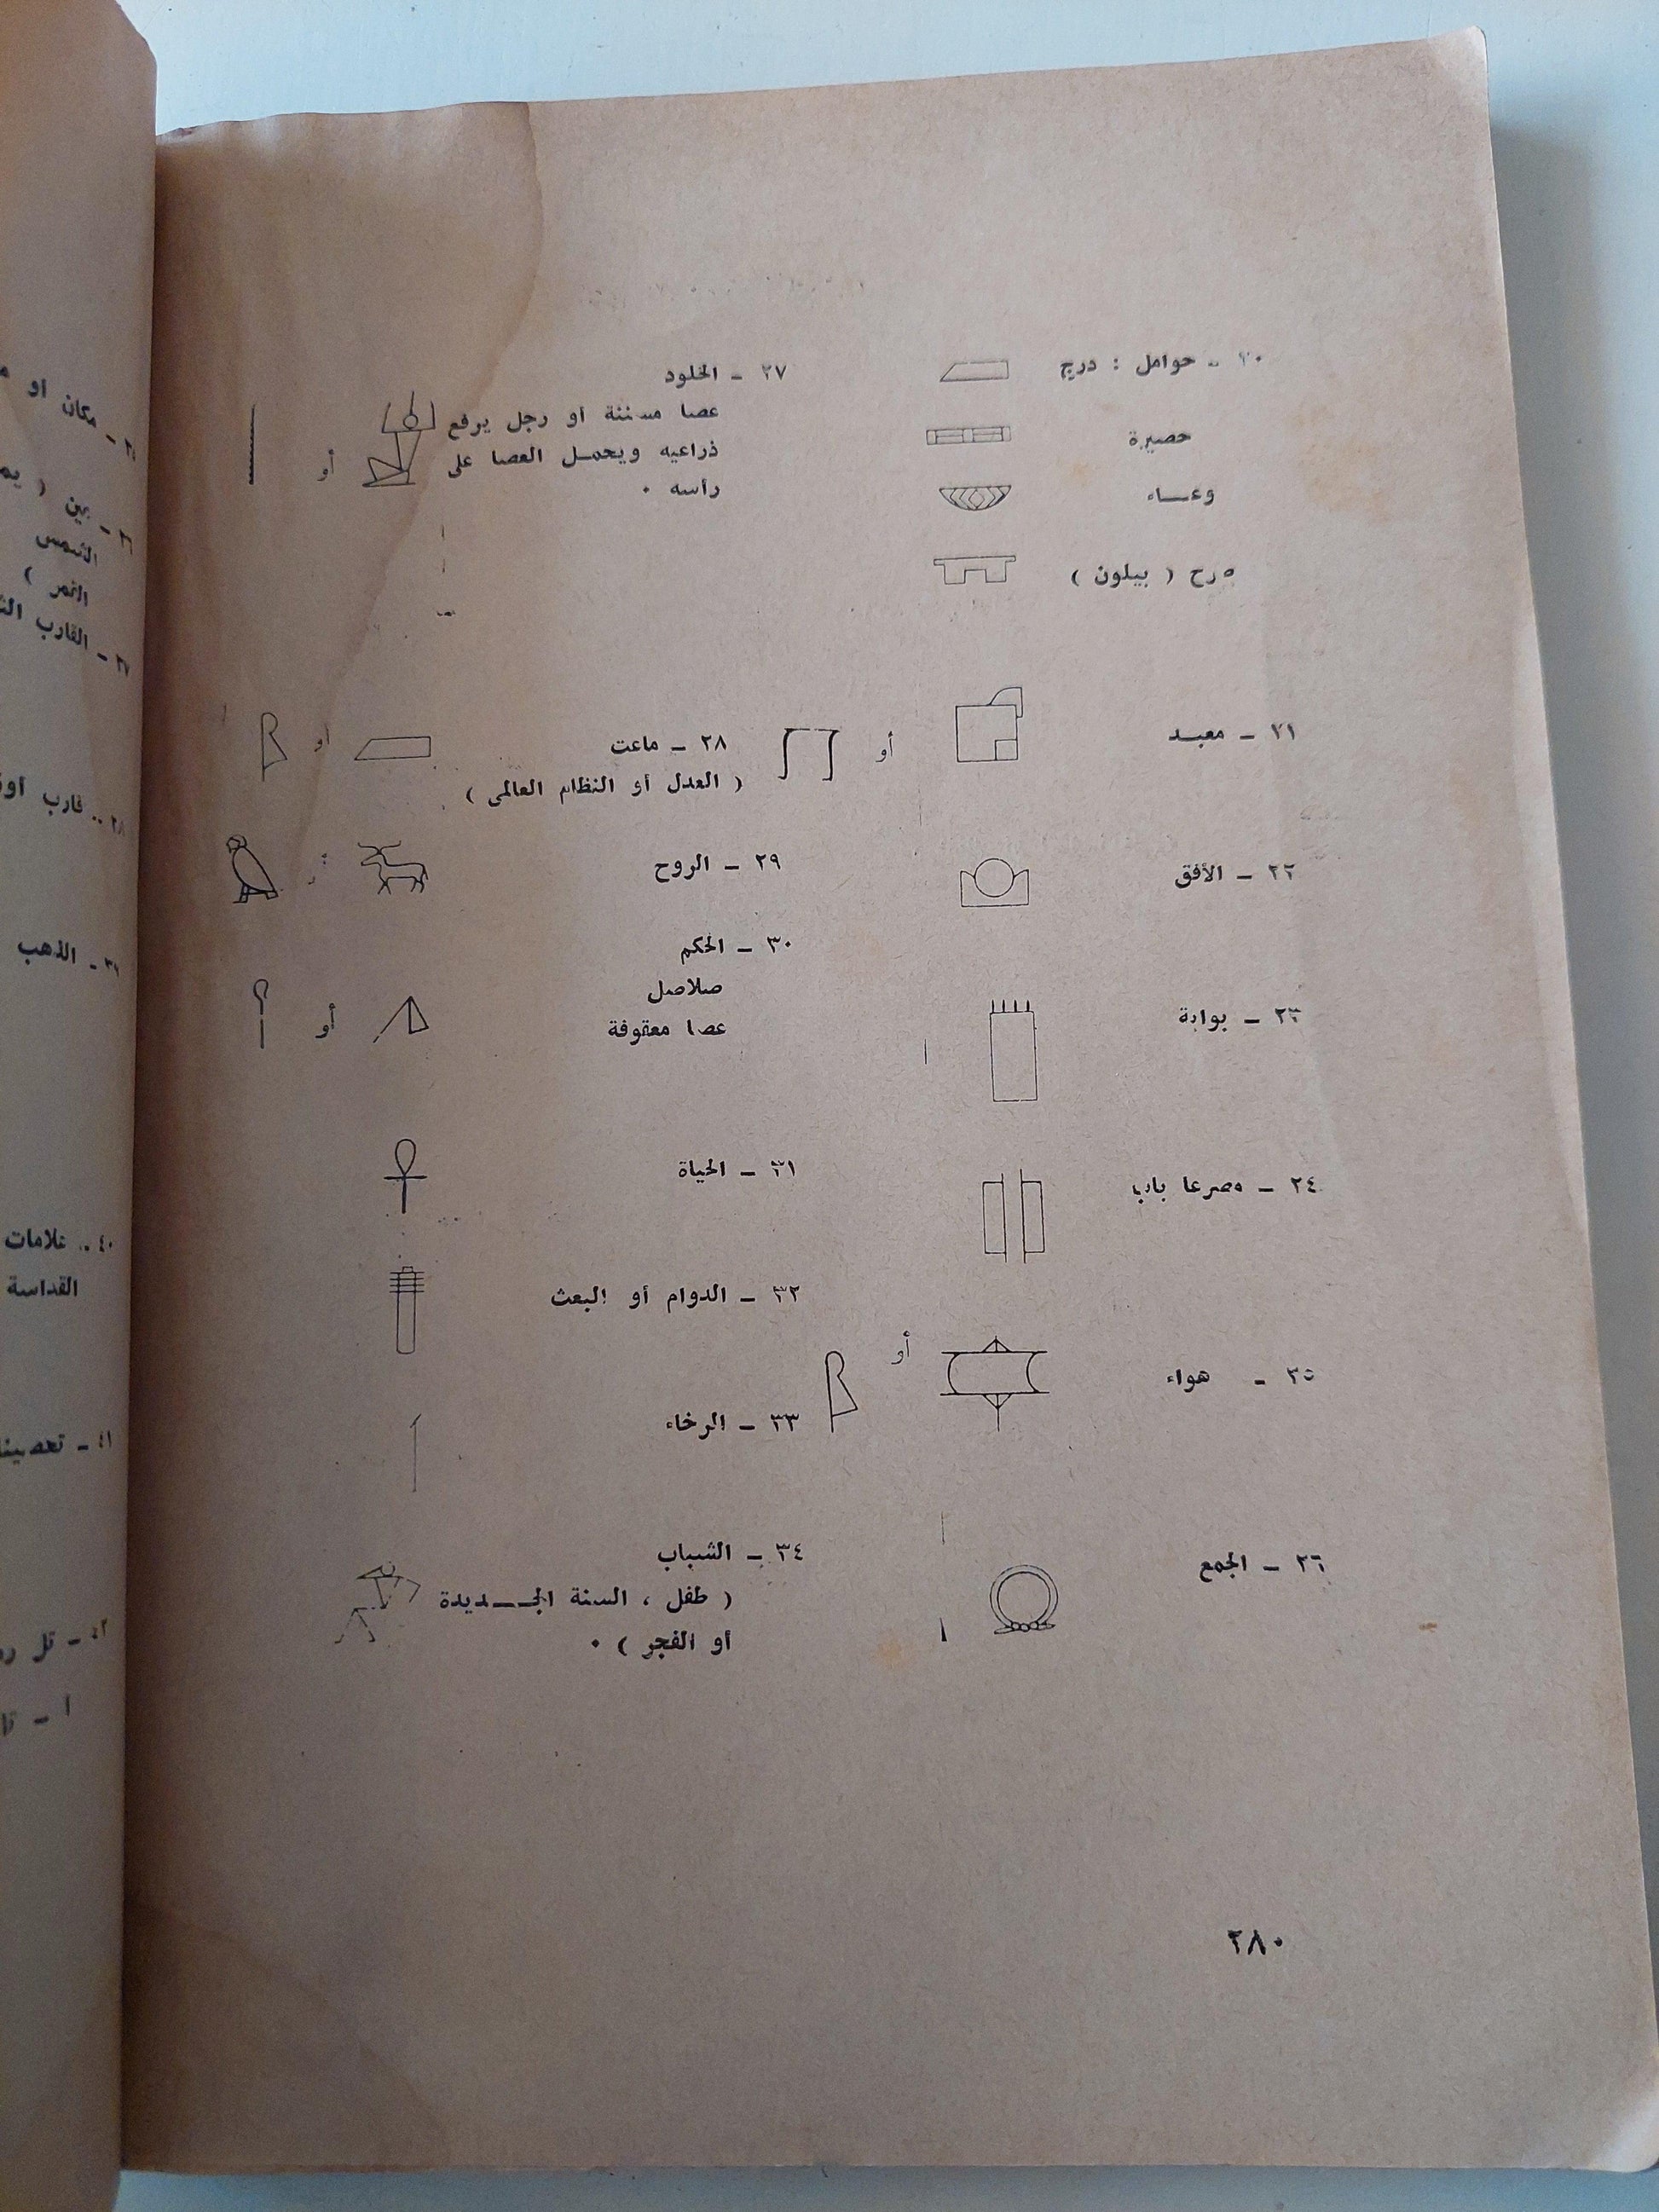 ٢٠ - حوامل : درج
حصيرة
وعاء
صرح ( بيلون )
٢١ - معبد
أو
٢٢ - الأفق
٢٣ - بوابة
٢٤ - مصرعا باب
٢٥ - هواء
أو
٢٦ - الجمع
٢٧ - الخلود
عصا مسننة أو رجل يرفع
ذراعيه ويحمل العصا على
رأسه .
أو
٢٨ - ماعت
أو
( العدل أو النظام العالمى )
٢٩ - الروح
أو
٣٠ - الحكم
صلاصل
عصا معقوفة
أو
٣١ - الحياة
٣٢ - الدوام أو البعث
٣٣ - الرخاء
٣٤ - الشباب
( طفل ، السنة الجديدة
أو الفجر ) .
٢٨٠
مكان أو
بين (
الشمس
القمر )
القارب
٣٨ - قارب
٣٩ - الذهب
٤٠ - علامات
القداسة
٤١ -
٤٢ - تل
أ -